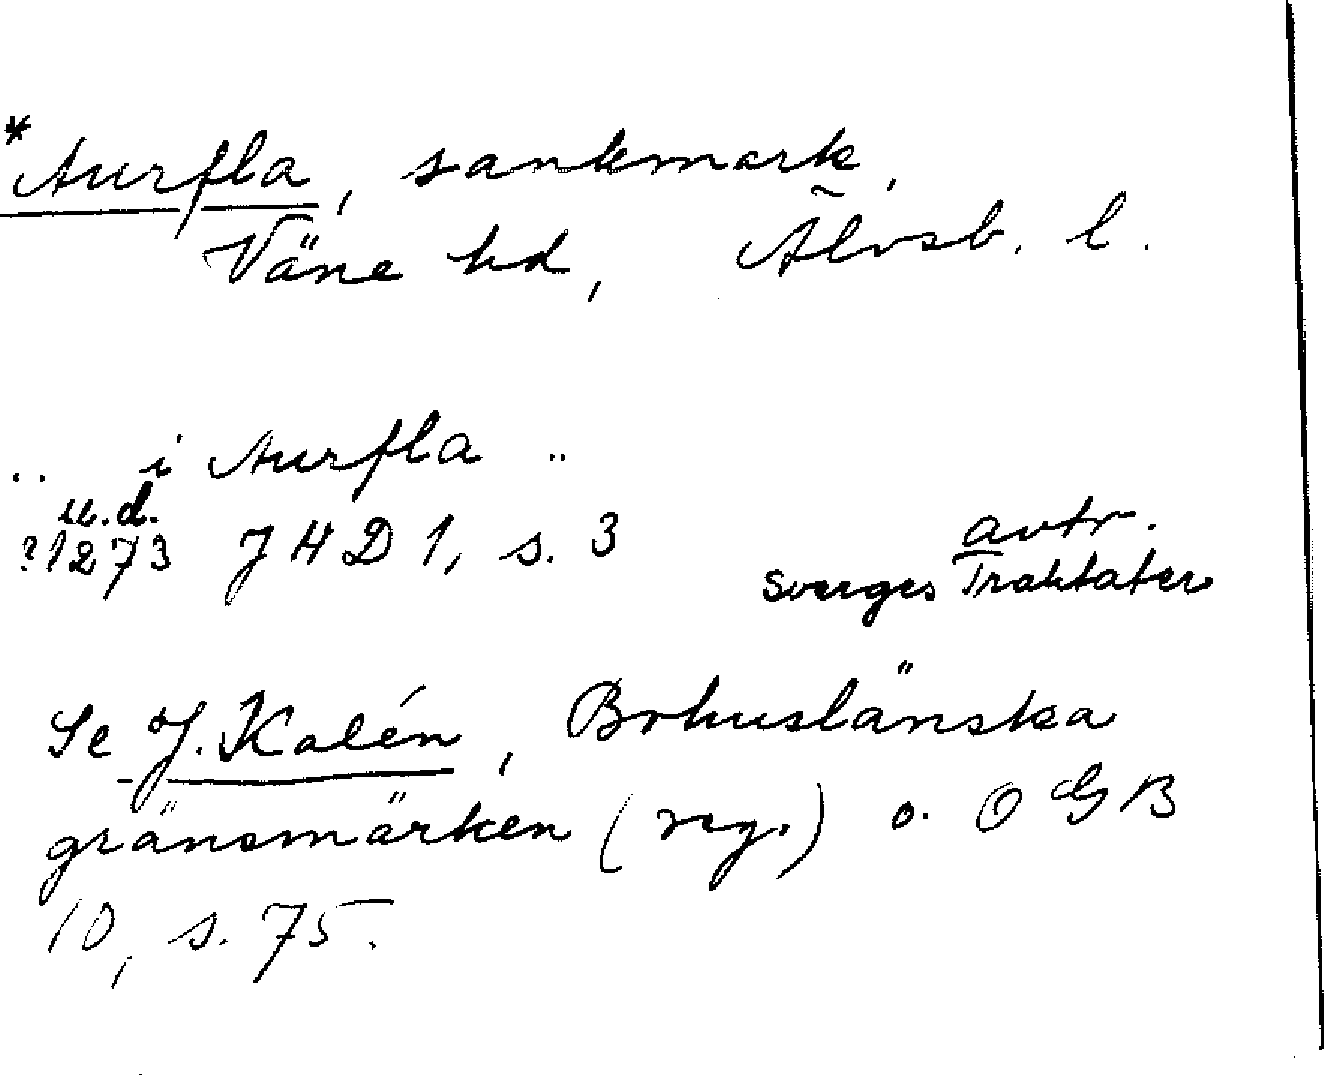 *Aurfla, sankmark,
Väne hd, Älvsb. l.
.. i Aurfla ..
u.d.
?1273 JHD 1, s. 3
avtr.
Sverges Traktater
Se J. Kalén, Bohuslänska
gränsmärken (reg.) o. OGB
10, s. 75.